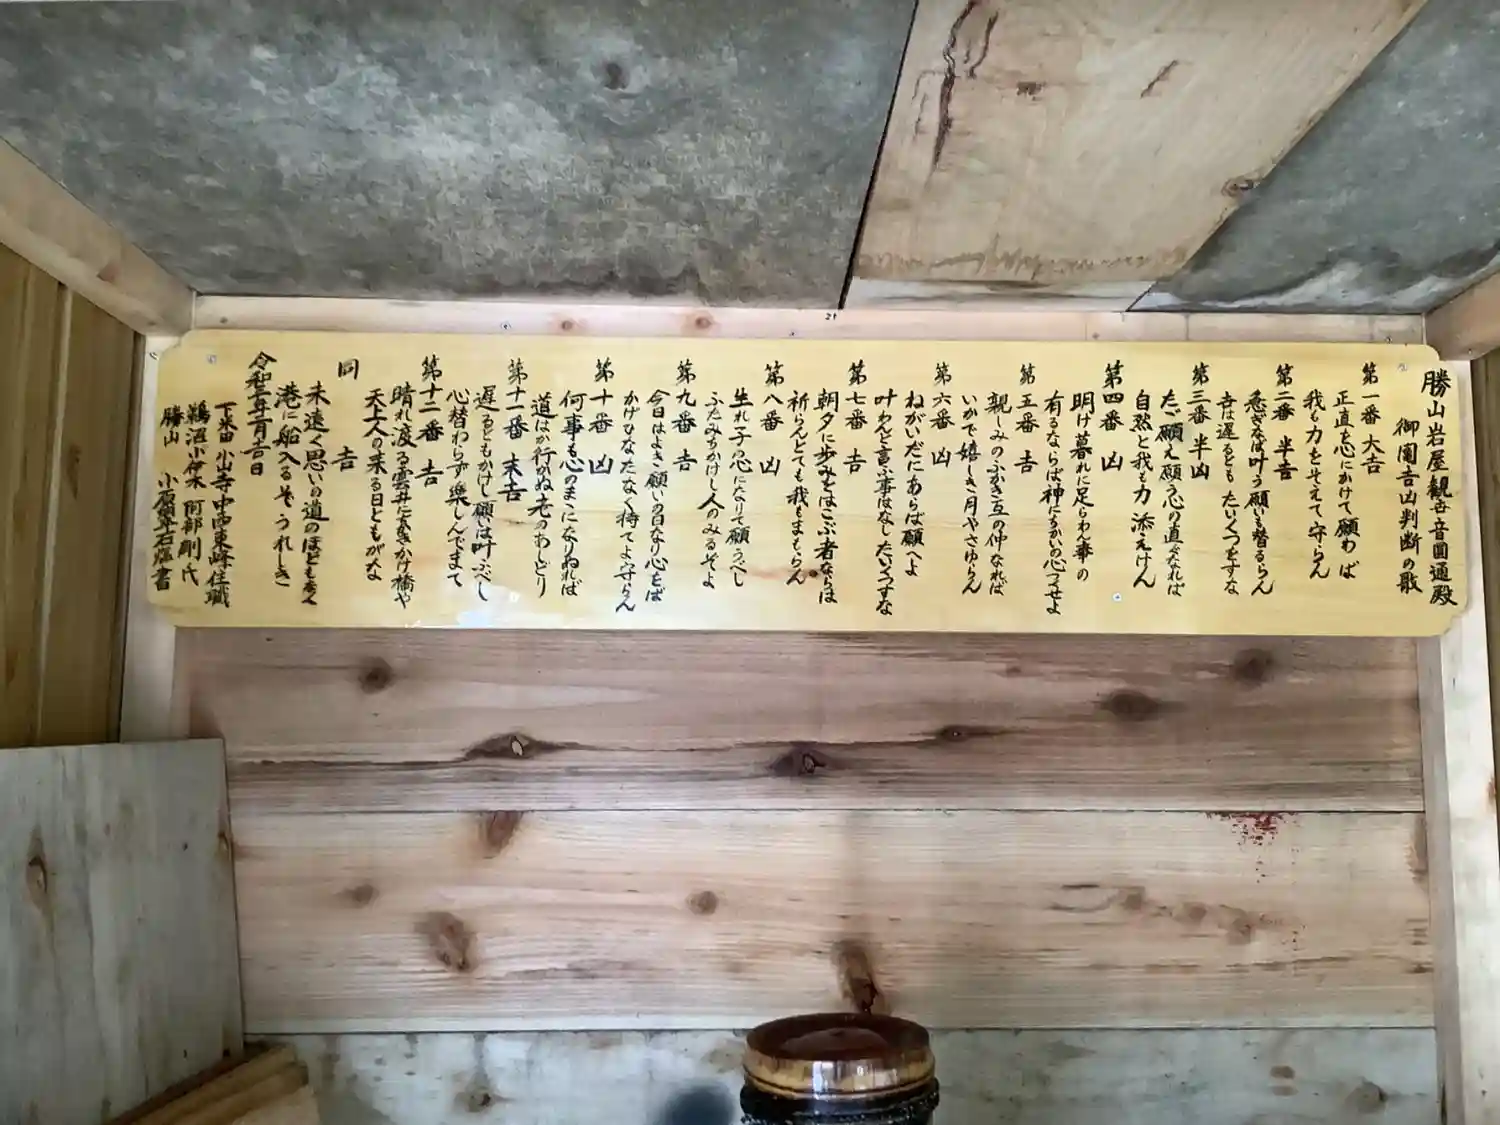 勝山岩屋観音圓通殿
御圖吉凶判断の歌
第一番 大吉
正直を心にかけて願わば
我も力をそえて守らん
第二番 半吉
急ぎなば叶う願いも替るらん
吉は遅るとも たいくつをすな
第三番 半凶
たゞ願え願う心の直ぐなれば
自然と我も力添えけん
第四番 凶
明け暮れに足らわん事の
有るならば神に
第五番 吉
親しみのふかき互の仲なれば
いかで嬉しき月やさゆらん
第六番 凶
ねがいだにあらば願へよ
叶わんと言ふ事はなしたいくつすな
第七番 吉
朝夕に歩みをはこぶ者ならは
祈らんとても我もまもらん
第八番 凶
生れ子の心になりて願うべし
ふたみちかけし人のみるぞよ
第九番 吉
今日はよき願いの日なり心をば
かげひなたなく持てよ守らん
第十番 凶
何事も心のまゝになりぬれば
道はか行かぬ老のあしどり
第十一番 末吉
遅るともかけし願いは叶ふべし
心替わらず楽しんでまて
第十二番 吉
晴れ渡る雲井にかけ橋や
天上人の来る日ともがな
同 吉
末遠く思いの道のほども
港に船入るぞうれしき
令和 吉日
下米田 小山寺 住職
鵜沼小伊木 阿部剛氏
勝山 書